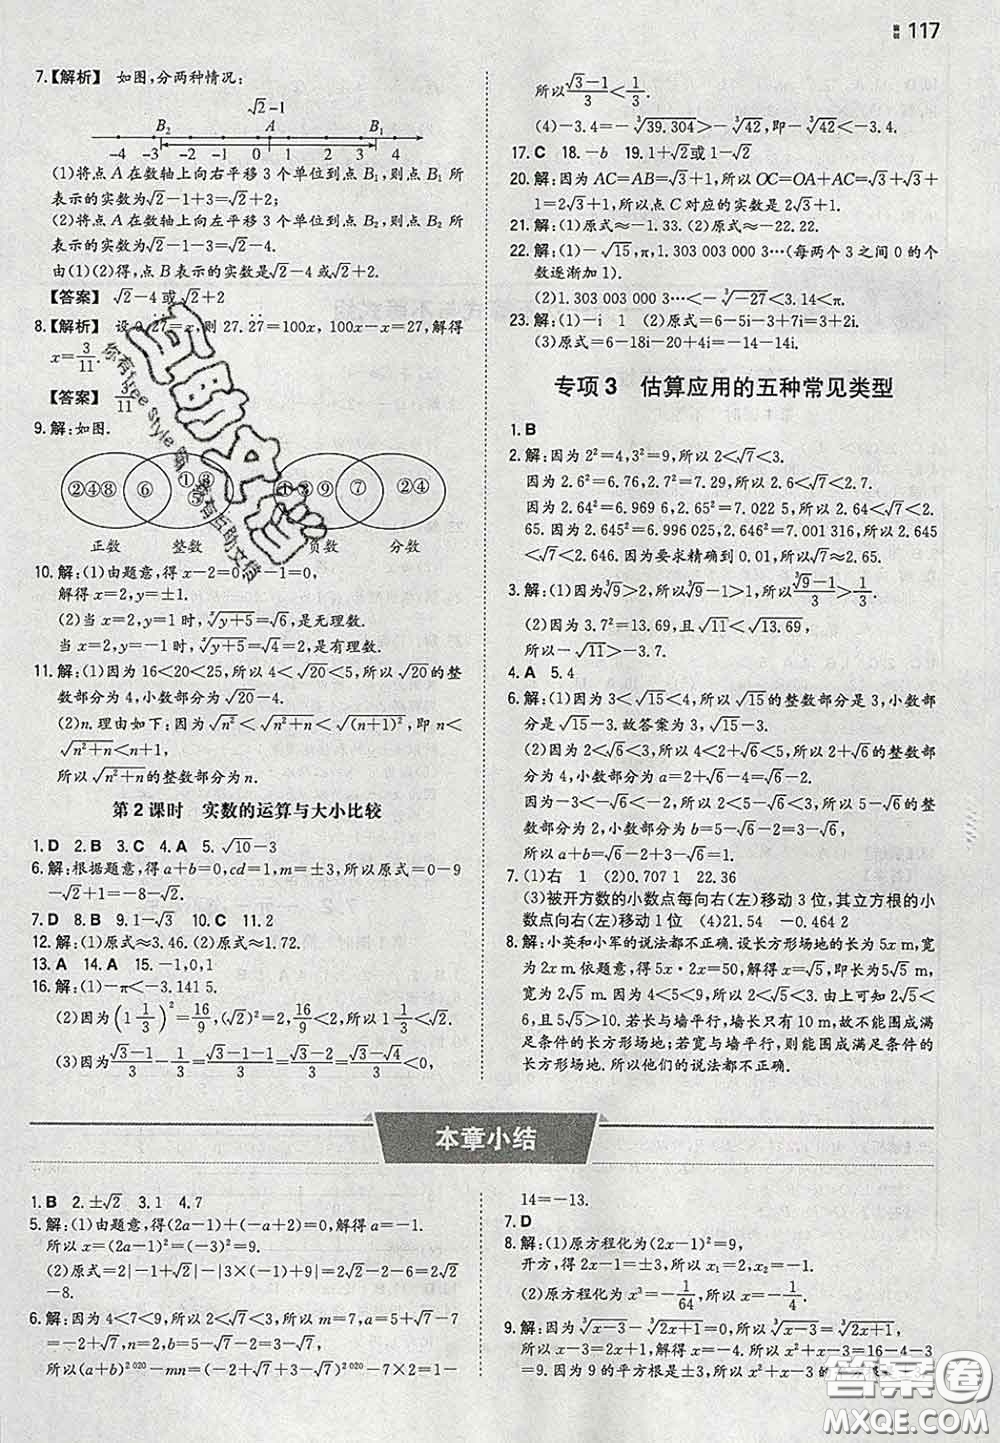 117
7.【解析】 如图,分两种情况:
√2-1
B₂ A B₁
-4 -3 -2 -1 0 1 2 3 4
(1)将点 A 在数轴上向右平移 3 个单位到点 B₁,则点 B₁ 所
表示的实数为√2-1+3=√2+2;
(2)将点 A 在数轴上向左平移 3 个单位到点 B₂,则点 B₂ 所
表示的实数为√2-1-3=√2-4.
由(1)(2)得,点 B 表示的实数是√2-4或√2+2.
【答案】 √2-4或√2+2
8.【解析】 设 27=x,则 27.27=100x, 100x-x=27,解得
x=3/11.
【答案】 3/11
9.解:如图.
②④⑧ ⑥ ①⑧⑤ ⑧⑨ ⑦ ②④
正数 整数 负数 分数
10.解:(1)由题意,得 x-2=0, -1=0,
解得 x=2,y=±1.
(2)当 x=2,y=1 时,ˣ√(y+5)=√6,是无理数.
当 x=2,y=-1 时,ˣ√(y+5)=√4=2,是有理数.
11.解:(1)因为 16<20<25,所以 4<√20<5,所以√20的整
数部分为 4,小数部分为√20-4.
(2)n.理由如下:因为√n²<√(n²+n)<√(n+1)²,即 n<
√(n²+n)<n+1,
所以√(n²+n)的整数部分为 n.
第 2 课时 实数的运算与大小比较
1.D 2.B 3.C 4.A 5.√10-3
6.解:根据题意,得 a+b=0,cd=1,m=±3,所以原式=0-9
-√2+1=-8-√2.
7.D 8.B 9.1-√3 10.C 11.2
12.解:(1)原式≈3.46.(2)原式≈1.72.
13.A 14.A 15.-1,0,1
16.解:(1)-π<-3.141 5.
(2)因为(1 1/3)²=16/9,(√2)²=2,16/9<2,所以 1 1/3<√2.
(3)因为(√3-1)/3-1/3=(√3-1-1)/3=(√3-2)/3=(√3-√4)/3<0,
所以(√3-1)/3<1/3.
(4)-3.4=-³√39.304>-³√42,即-³√42<-3.4.
17.C 18.-b 19.1+√2或 1-√2
20.解:因为 AC=AB=√3+1,所以 OC=OA+AC=√3+√3+
1=2√3+1,所以点 C 对应的实数是 2√3+1.
21.解:(1)原式≈-1.33.(2)原式≈-22.22.
22.解:(1)-√15,π,1.303 003 000 3…(每两个 3 之间 0 的个
数逐渐加 1).
(2)1.303 003 000 3…<-³√-27<π.
23.解:(1)-i 1 (2)原式=6-5i-3+7i=3+2i.
(3)原式=6-18i-20+4i-i=-14-15i.
专项 3 估算应用的五种常见类型
1.B
2.解:因为 2²=4,3²=9,所以 2<√7<3.
因为 2.6²=6.76,2.7²=7.29,所以 2.6<√7<2.7.
因为 2.64²=6.969 6,2.65²=7.022 5,所以 2.64<√7<2.
65.因为 2.645²=6.996 025,2.646²=7.001 316,所以 2.645
<√7<2.646.因为要求精确到 0.01,所以√7≈2.65.
3.解:(1)因为³√9>2,所以³√9-1>1,所以(³√9-1)/3>1/3.
(2)因为 3.7²=13.69,且√11<√13.69,
所以-√11>-3.7.
4.A 5.4
6.解:(1)因为 3<√15<4,所以√15的整数部分是 3,小数部
分是√15-3.故答案为 3,√15-3.
(2)因为 2<√6<3,所以 4<2+√6<5,所以 2+√6的整数
部分为 4,小数部分 a=2+√6-4=√6-2.
因为-3<-√6<-2,所以 2<5-√6<3,所以 5-√6的整数
部分为 2,小数部分 b=5-√6-2=3-√6,
所以 a+b=√6-2+3-√6=1.
7.(1)右 1 (2)0.707 1 22.36
(3)被开方数的小数点每向右(左)移动 3 位,其立方根的小
数点向右(左)移动 1 位 (4)21.54 -0.464 2
8.解:小英和小军的说法都不正确.设长方形场地的长为 5x m,宽
为 2x m.依题意,得 5x·2x=50,解得 x=√5,即长为 5√5 m,
宽为 2√5 m.因为 4<5<9,所以 2<√5<3.由上可知 2√5<
6,且 5√5>10.若长与墙平行,墙长只有 10 m,故不能围成满
足条件的长方形场地;若宽与墙平行,则能围成满足条件的
长方形场地.所以他们的说法都不正确.
本章小结
1.B 2.±√2 3.1 4.7
5.解:(1)由题意,得(2a-1)+(-a+2)=0,解得 a=-1.
所以 x=(2a-1)²=(-3)²=9.
(2)原式=2|-1+√2|-|3×(-1)-√2|=2√2-2-6=√2
-8.
6.解:因为 4<7<9,所以 2<√7<3,所以 m=7,a=5+√7-7
=-2+√7,n=2,b=5-√7-2=3-√7,
所以(a+b)²⁰²⁰-mn=(-2+√7+3-√7)²⁰²⁰-7×2=1-
14=-13.
7.D
8.解:(1)原方程化为(2x-1)²=9,
开方,得 2x-1=±3,所以 x₁=2,x₂=-1.
(2)原方程化为 x³=-1/64,所以 x=-1/4.
9.解:因为³√(x-3)-³√(2x+1)=0,所以³√(x-3)=³√(2x+1),
所以 x-3=2x+1,所以 x=-4,所以 x²+x-3=16-4-3
=9.因为 9 的平方根是±3,所以 x²+x-3
答案圈
MXQE.COM